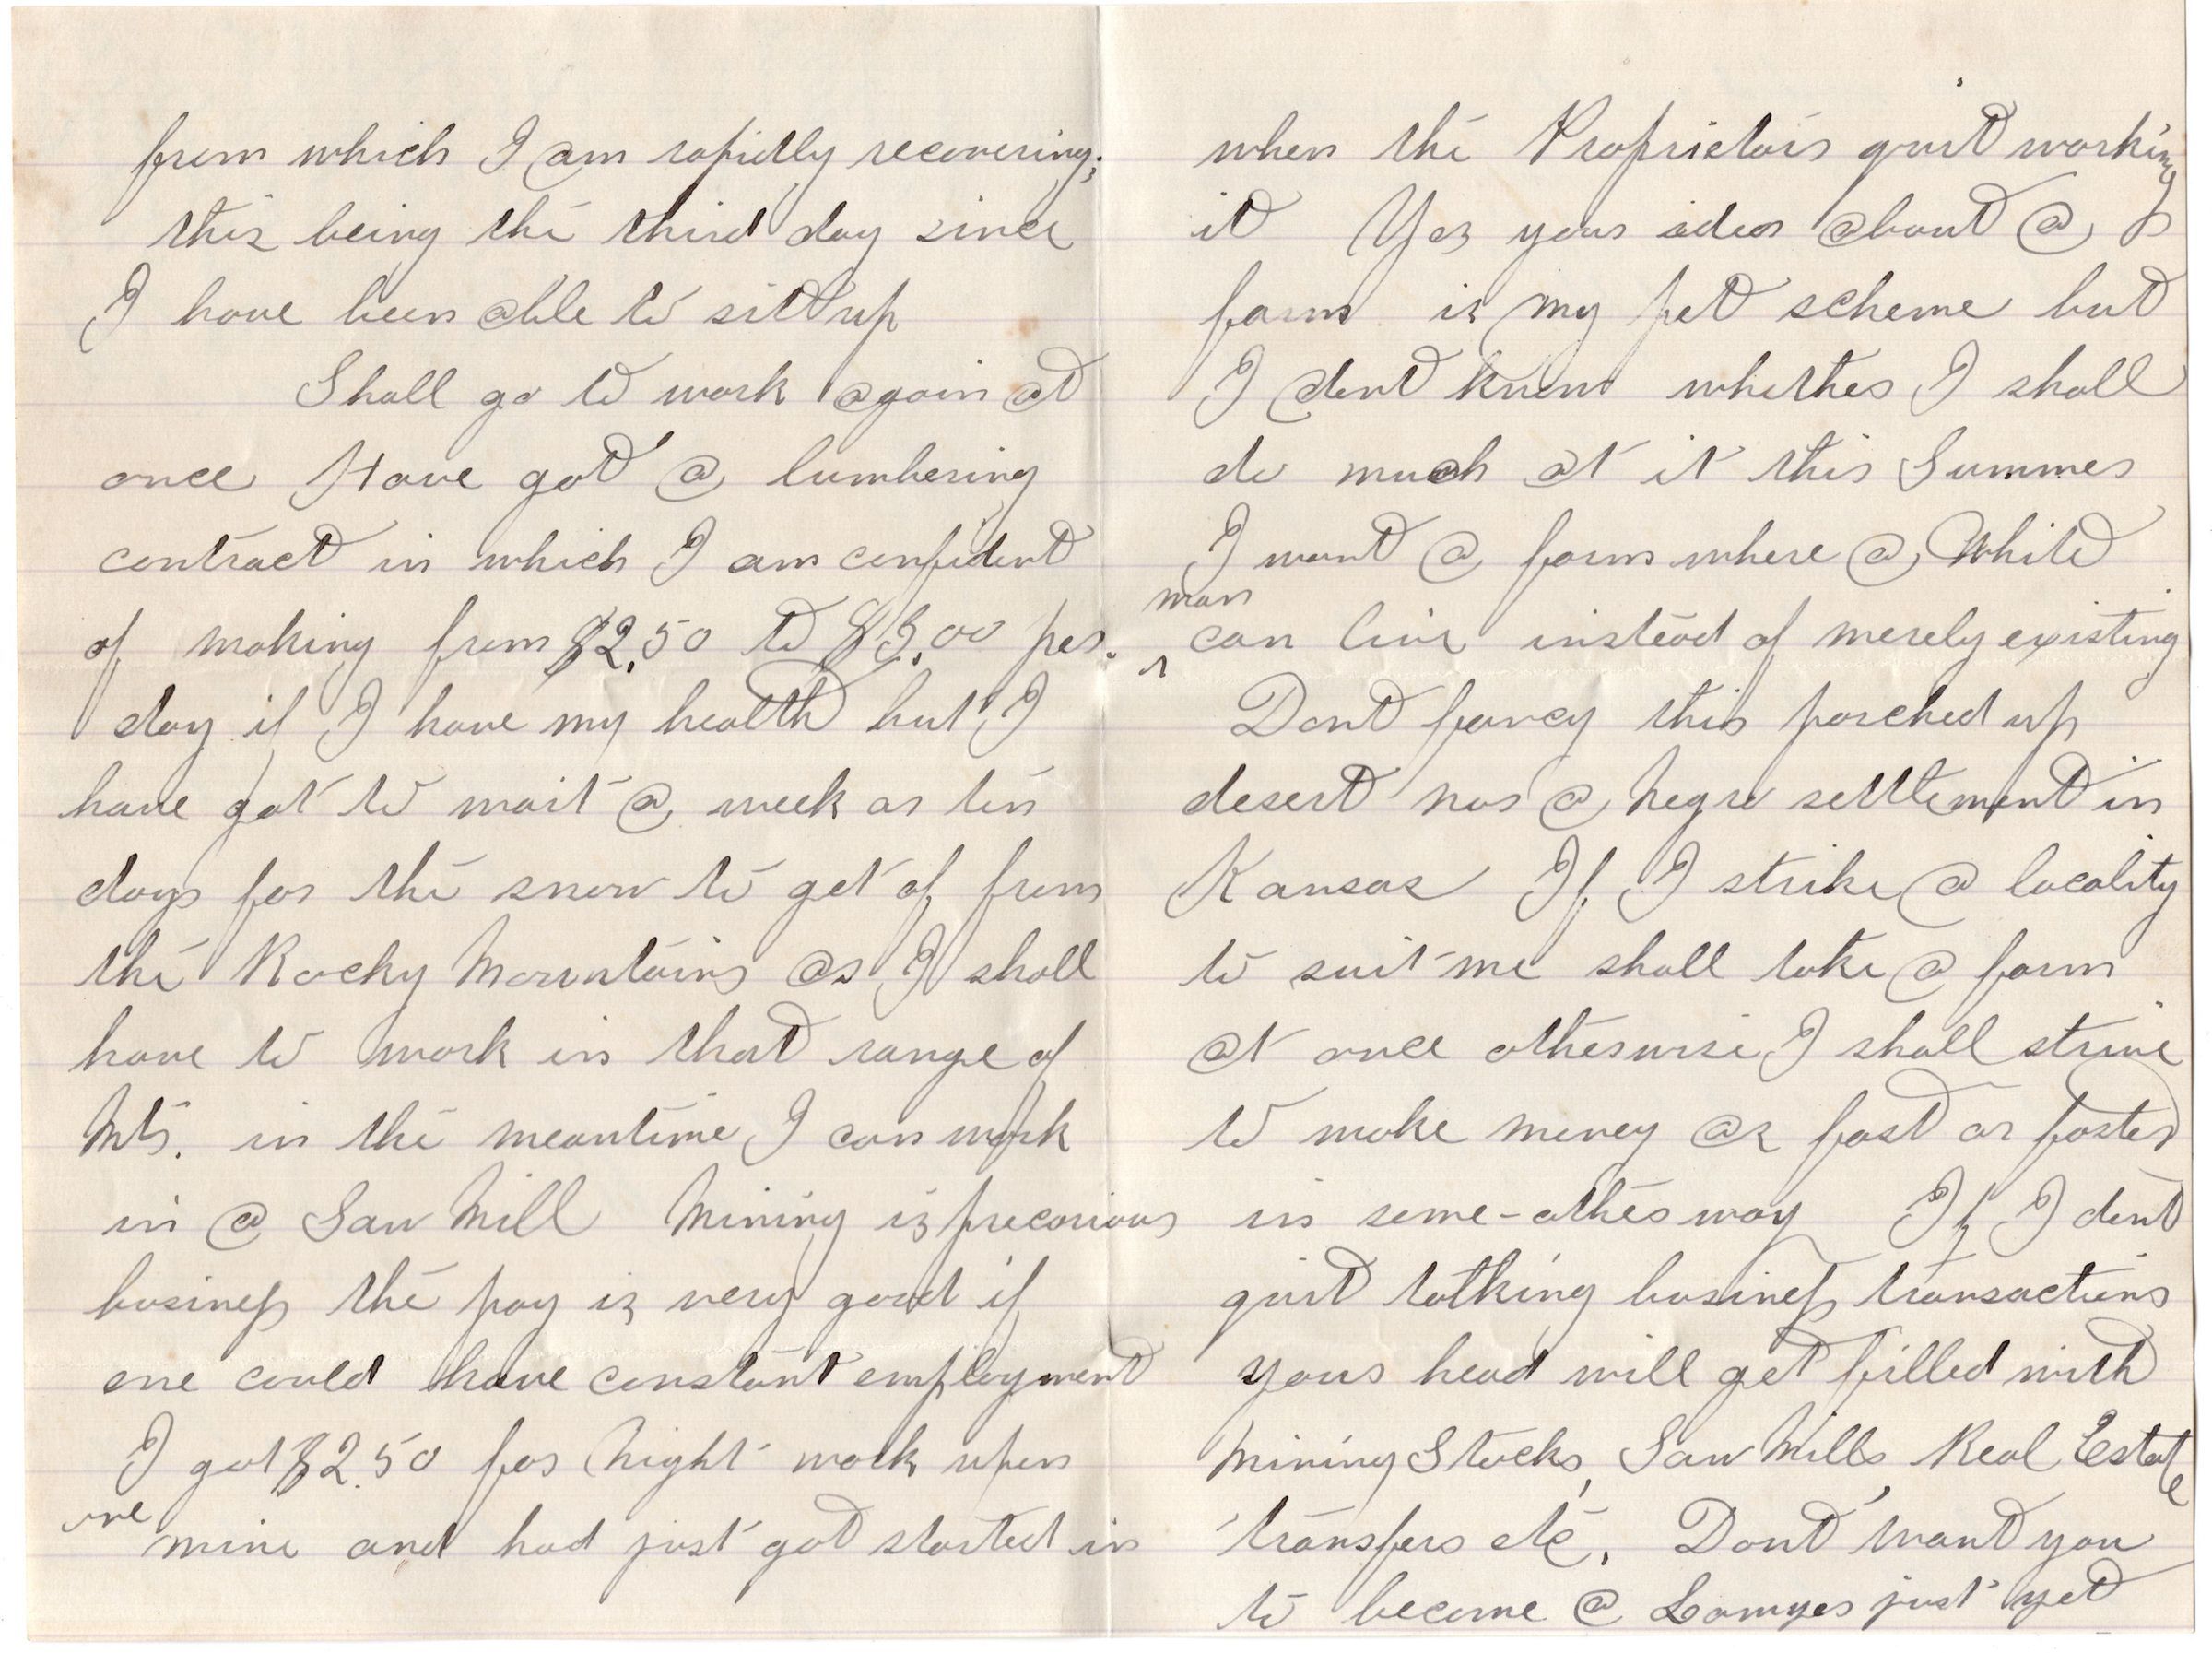 from which I am rapidly recovering;
this being the third day since
I have been able to sit up
Shall go to work again at
once Have got a lumbering
contract in which I am confident
of making from $2.50 to $3.00 per.
day if I have my health but I
have got to wait a week or ten
days for the snow to get of from
the Rocky Mountains as I shall
have to work in that range of
Mts. in the meantime I can work
in a Saw Mill Mining is precarious
business the pay is very good if
one could have constant employment
I got $2.50 for night work upon
one mine and had just got started in
when the Proprietors quit working
it Yes your idea about a
farm is my pet scheme but
I dont know whether I shall
do much at it this Summer
I want a farm where a White
man
can live instead of merely existing
Dont fancy this parched up
desert nor a Negro settlement in
Kansas If I strike a locality
to suit me shall take a farm
at once otherwise I shall strive
to make money as fast or faster
in some-other way If I dont
quit talking business transactions
your head will get filled with
Mining Stocks, Saw Mills Real Estate
transfers etc. Dont want you
to become a Lawyer just yet